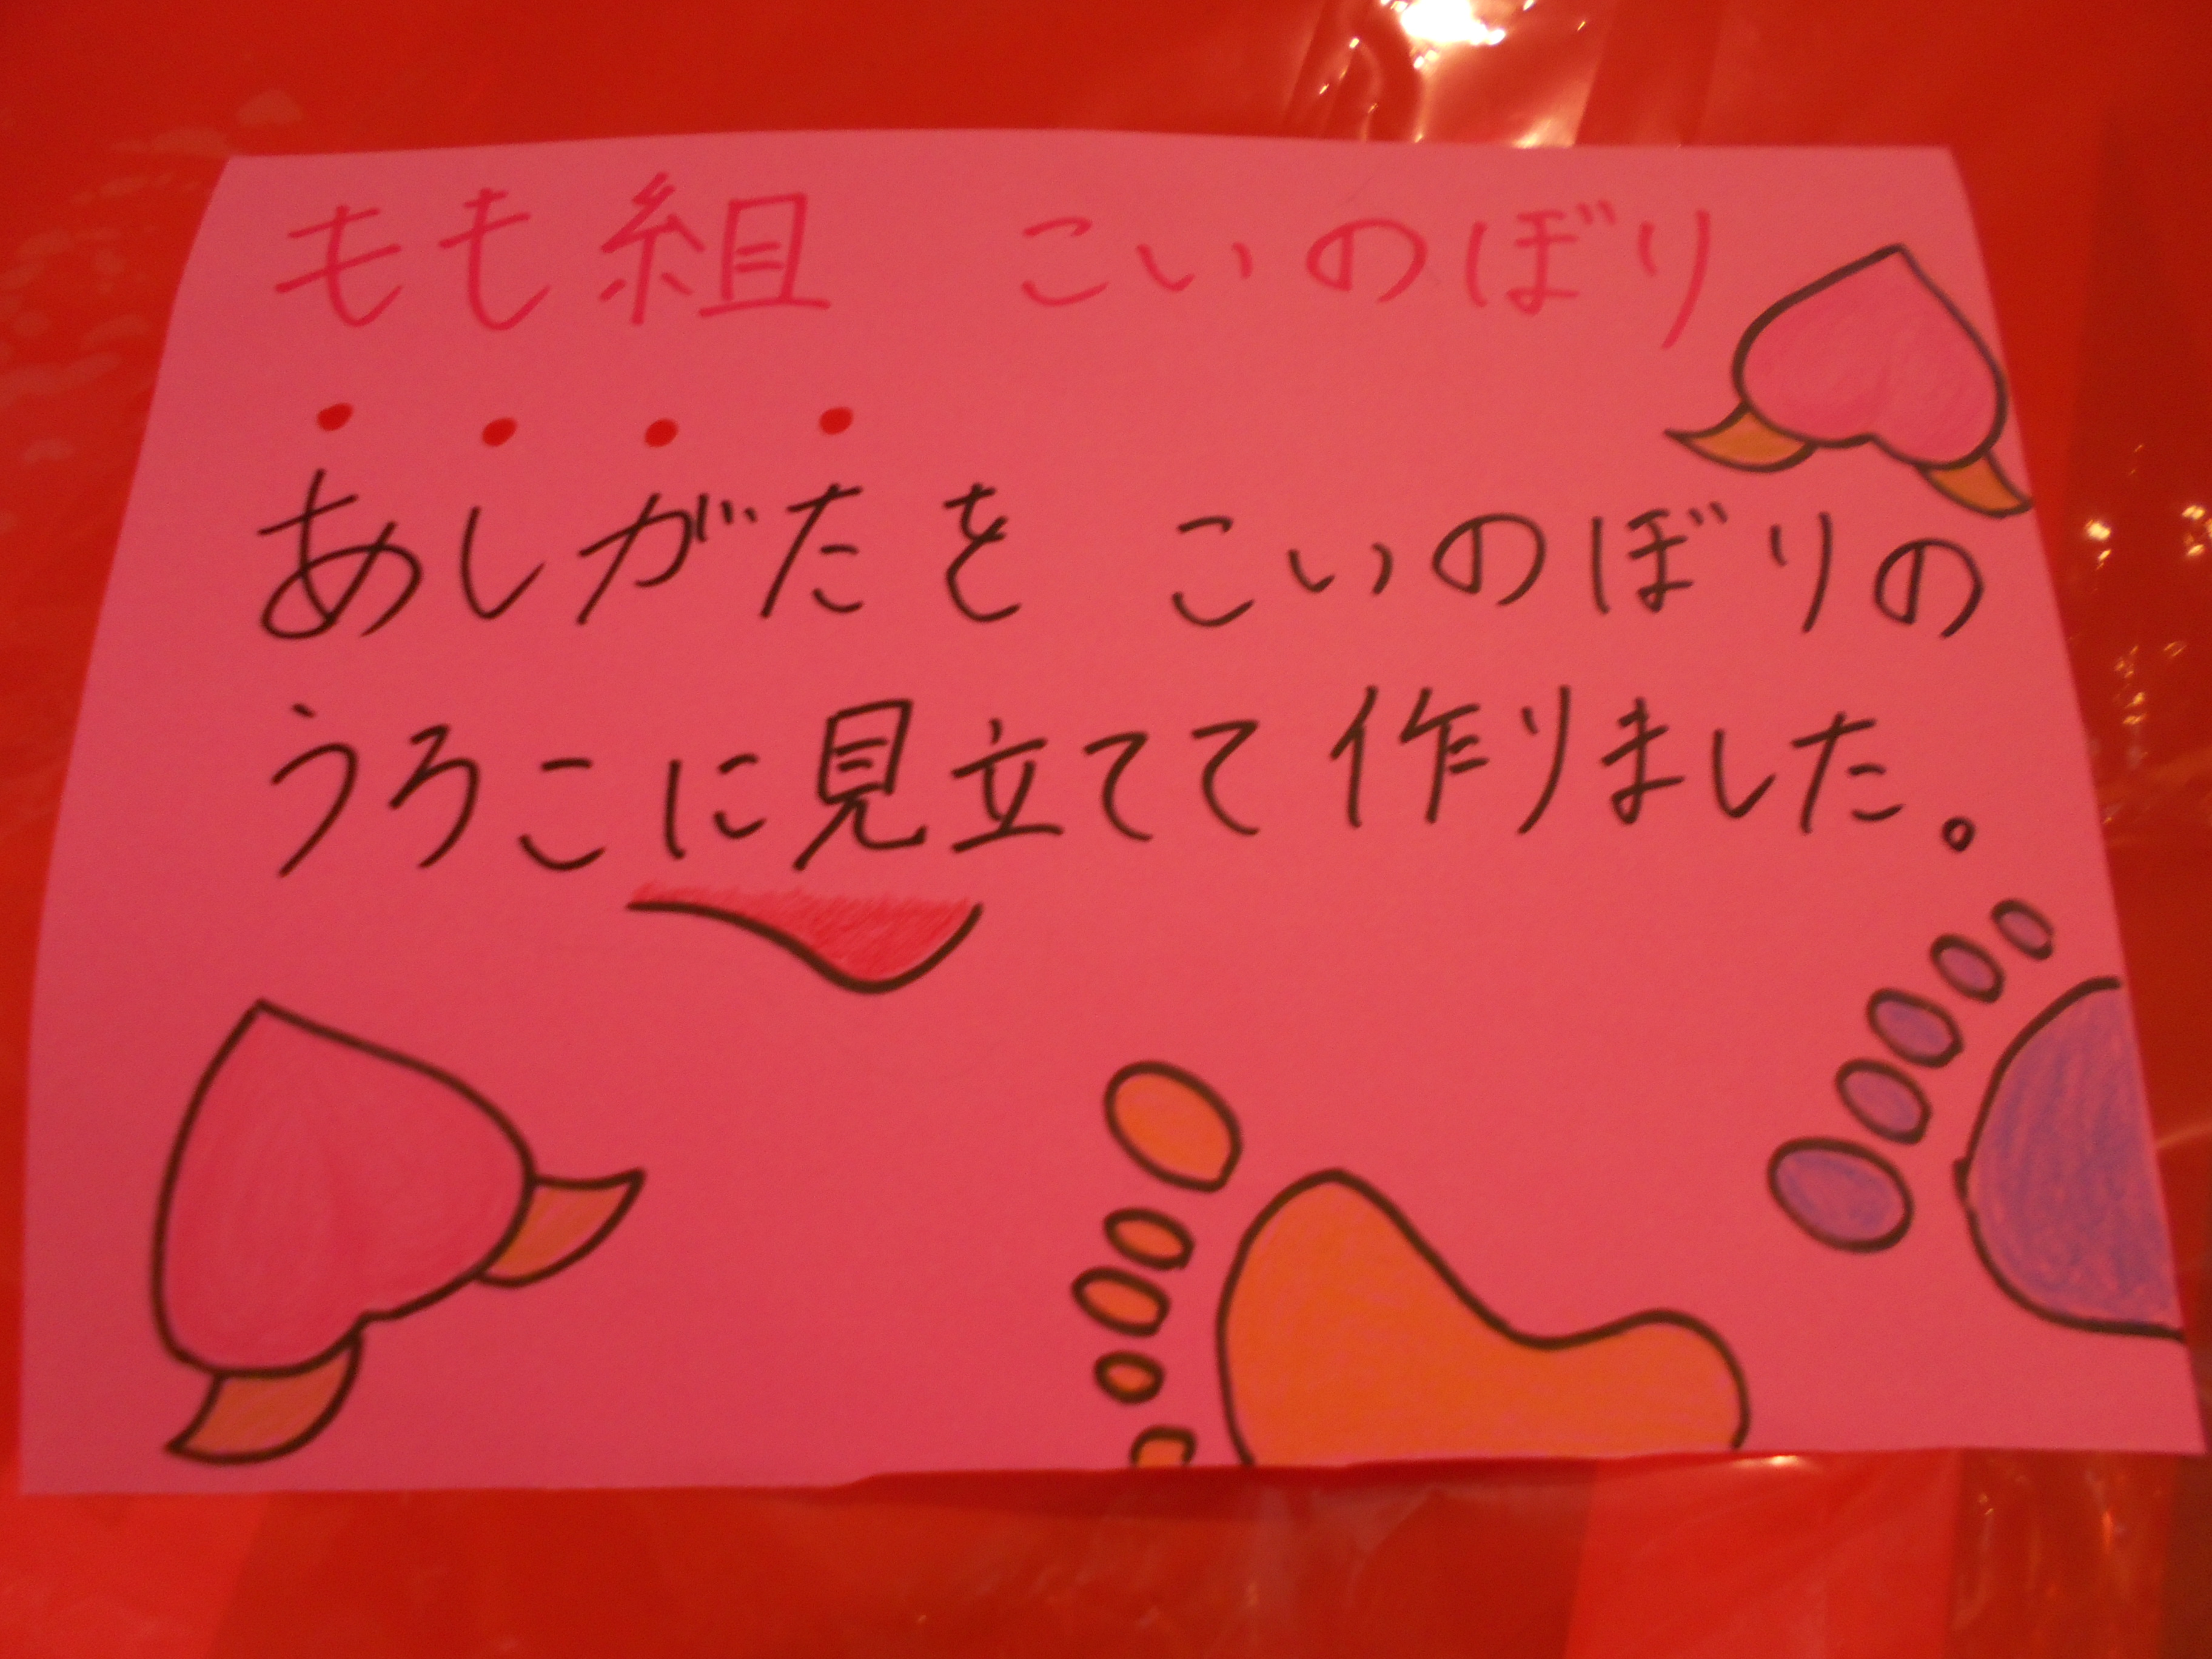 もも組　こいのぼり
あしがたを　こいのぼりの
うろこに見立てて作りました。